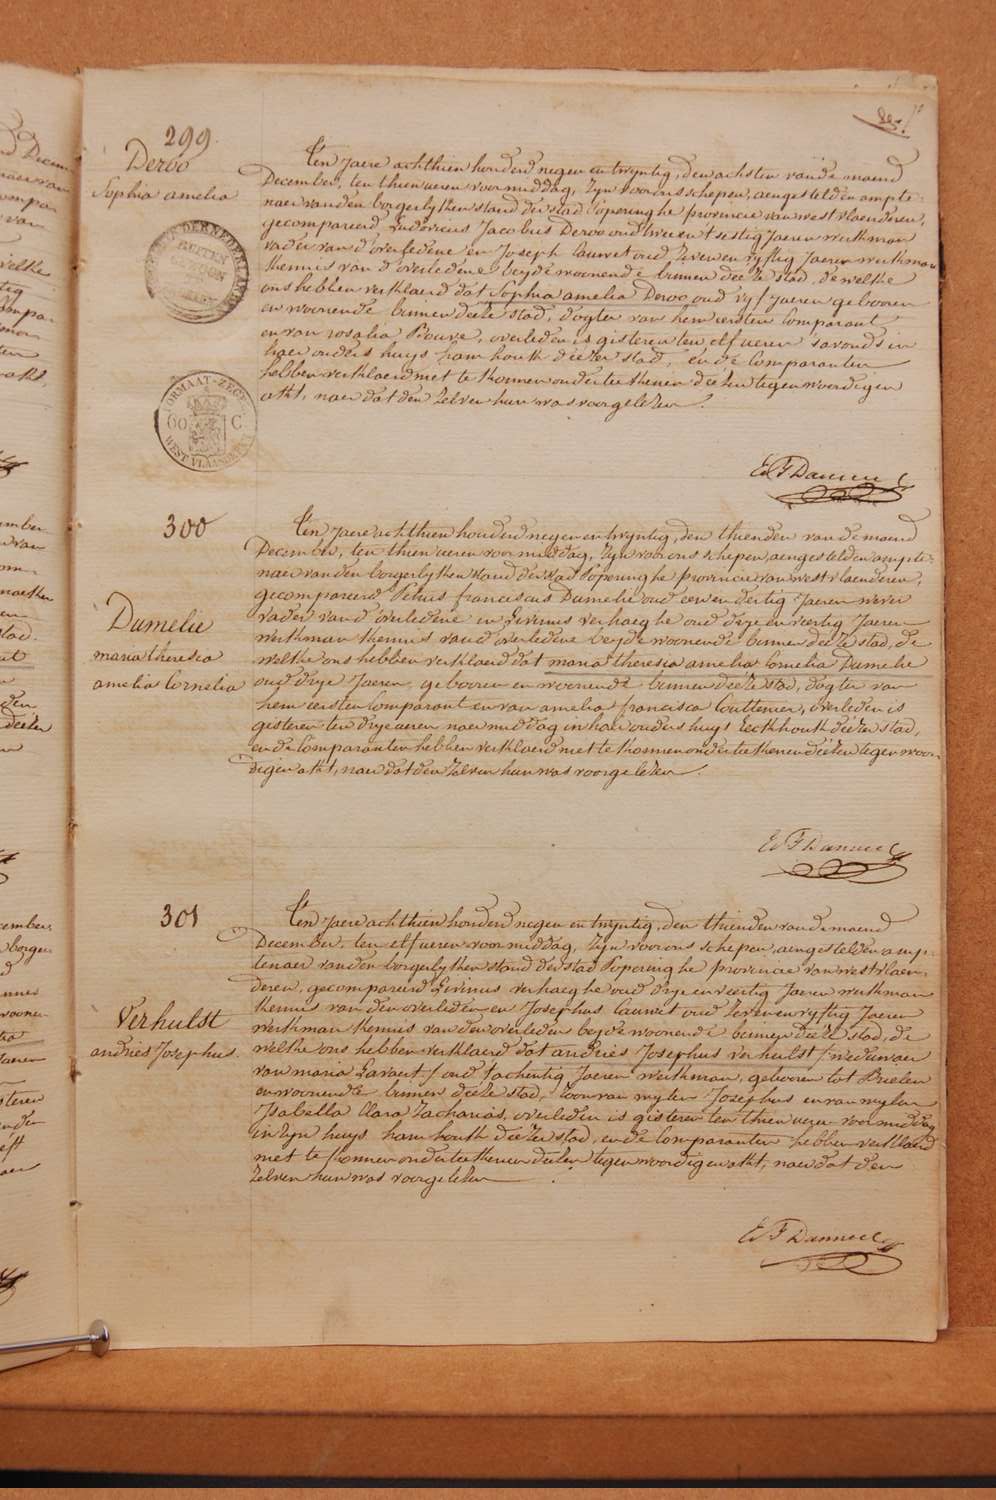 299
Deroo
Sophia amelia
DER NEDERLANDEN
BUITEN
FORMAAT-ZEGEL
60 C
WEST VLAANDEREN
Ten Jaere achthien honderd negen en twyntig, den achsten van de maend
December, ten thien ueren voormiddag, Zyn voor ons schepen, aengestelden ampte-
naer van den borgerlyken stand der stad Poperinghe provincie van westvlaenderen,
gecompareerd Ludovicus Jacobus Deroo oud twee en t'sestig Jaeren werkman
vader van d'overledene en Joseph Cauwet oud Zeven en vyftig Jaeren werkman
kennis van d'overledene beyde woonende binnen deeze stad, dewelke
ons hebben verklaerd dat Sophia amelia Deroo oud vyf Jaeren gebooren
en woonende binnen deeze stad, dogter van hem eersten Comparant
en van rosalia Bouve, overleden is gisteren ten elf ueren savonds in
haer ouders huys hamhouk deezer stad, en de Comparanten
hebben verklaerd niet te konnen onderteekenen deezen tegenwoordigen
akt, naer dat den Zelven hun was voorgelezen.
E F Danneel
300
Dumelie
maria theresia
amelia Cornelia
Ten Jaere achthien honderd negen en twyntig, den thienden van de maend
December, ten thien ueren voormiddag, Zyn voor ons schepen, aengestelden ampte-
naer van den borgerlyken stand der stad Poperinghe provincie van westvlaenderen,
gecompareerd Petrus franciscus Dumelie oud een en dertig Jaeren wever
vader van d'overledene en Livinus verhaeghe oud drye en veertig Jaeren
werkman kennis van d'overledene beyde woonende binnen deeze stad, de
welke ons hebben verklaerd dat maria theresia amelia Cornelia Dumelie
oud drye Jaeren, gebooren en woonende binnen deeze stad, dogter van
hem eersten Comparant en van amelia francisca Couttenier, overleden is
gisteren ten drye ueren naermiddag in haer ouders huys Eeckhouk deezer stad,
en de Comparanten hebben verklaerd niet te konnen onderteekenen deezen tegenwoor-
digen akt, naer dat den Zelven hun was voorgelezen.
E F Danneel
301
Verhulst
andries Josephus.
Ten Jaere achthien honderd negen en twyntig, den thienden van de maend
December, ten elf ueren voormiddag, Zyn voor ons schepen, aengestelden amp-
tenaer van den borgerlyken stand der stad Poperinghe provincie van westvlaen-
deren, gecompareerd Livinus verhaeghe oud drye en veertig Jaeren werkman
kennis van den overleden en Josephus Cauwet oud Zeven en vyftig Jaeren
werkman kennis van den overleden beyde woonende binnen deeze stad, de
welke ons hebben verklaerd dat andries Josephus verhulst /: weduwaer
van maria Lavaert :/ oud tachentig Jaeren werkman, gebooren tot Brielen
en woonende binnen deeze stad, Zoon van wylen Josephus en van wylen
Isabella Clara Zacharias, overleden is gisteren ten thien ueren voormiddag
in zyn huys hamhouk deezer stad, en de Comparanten hebben verklaerd
niet te konnen onderteekenen deezen tegenwoordigen akt, naer dat den
Zelven hun was voorgelezen.
E F Danneel